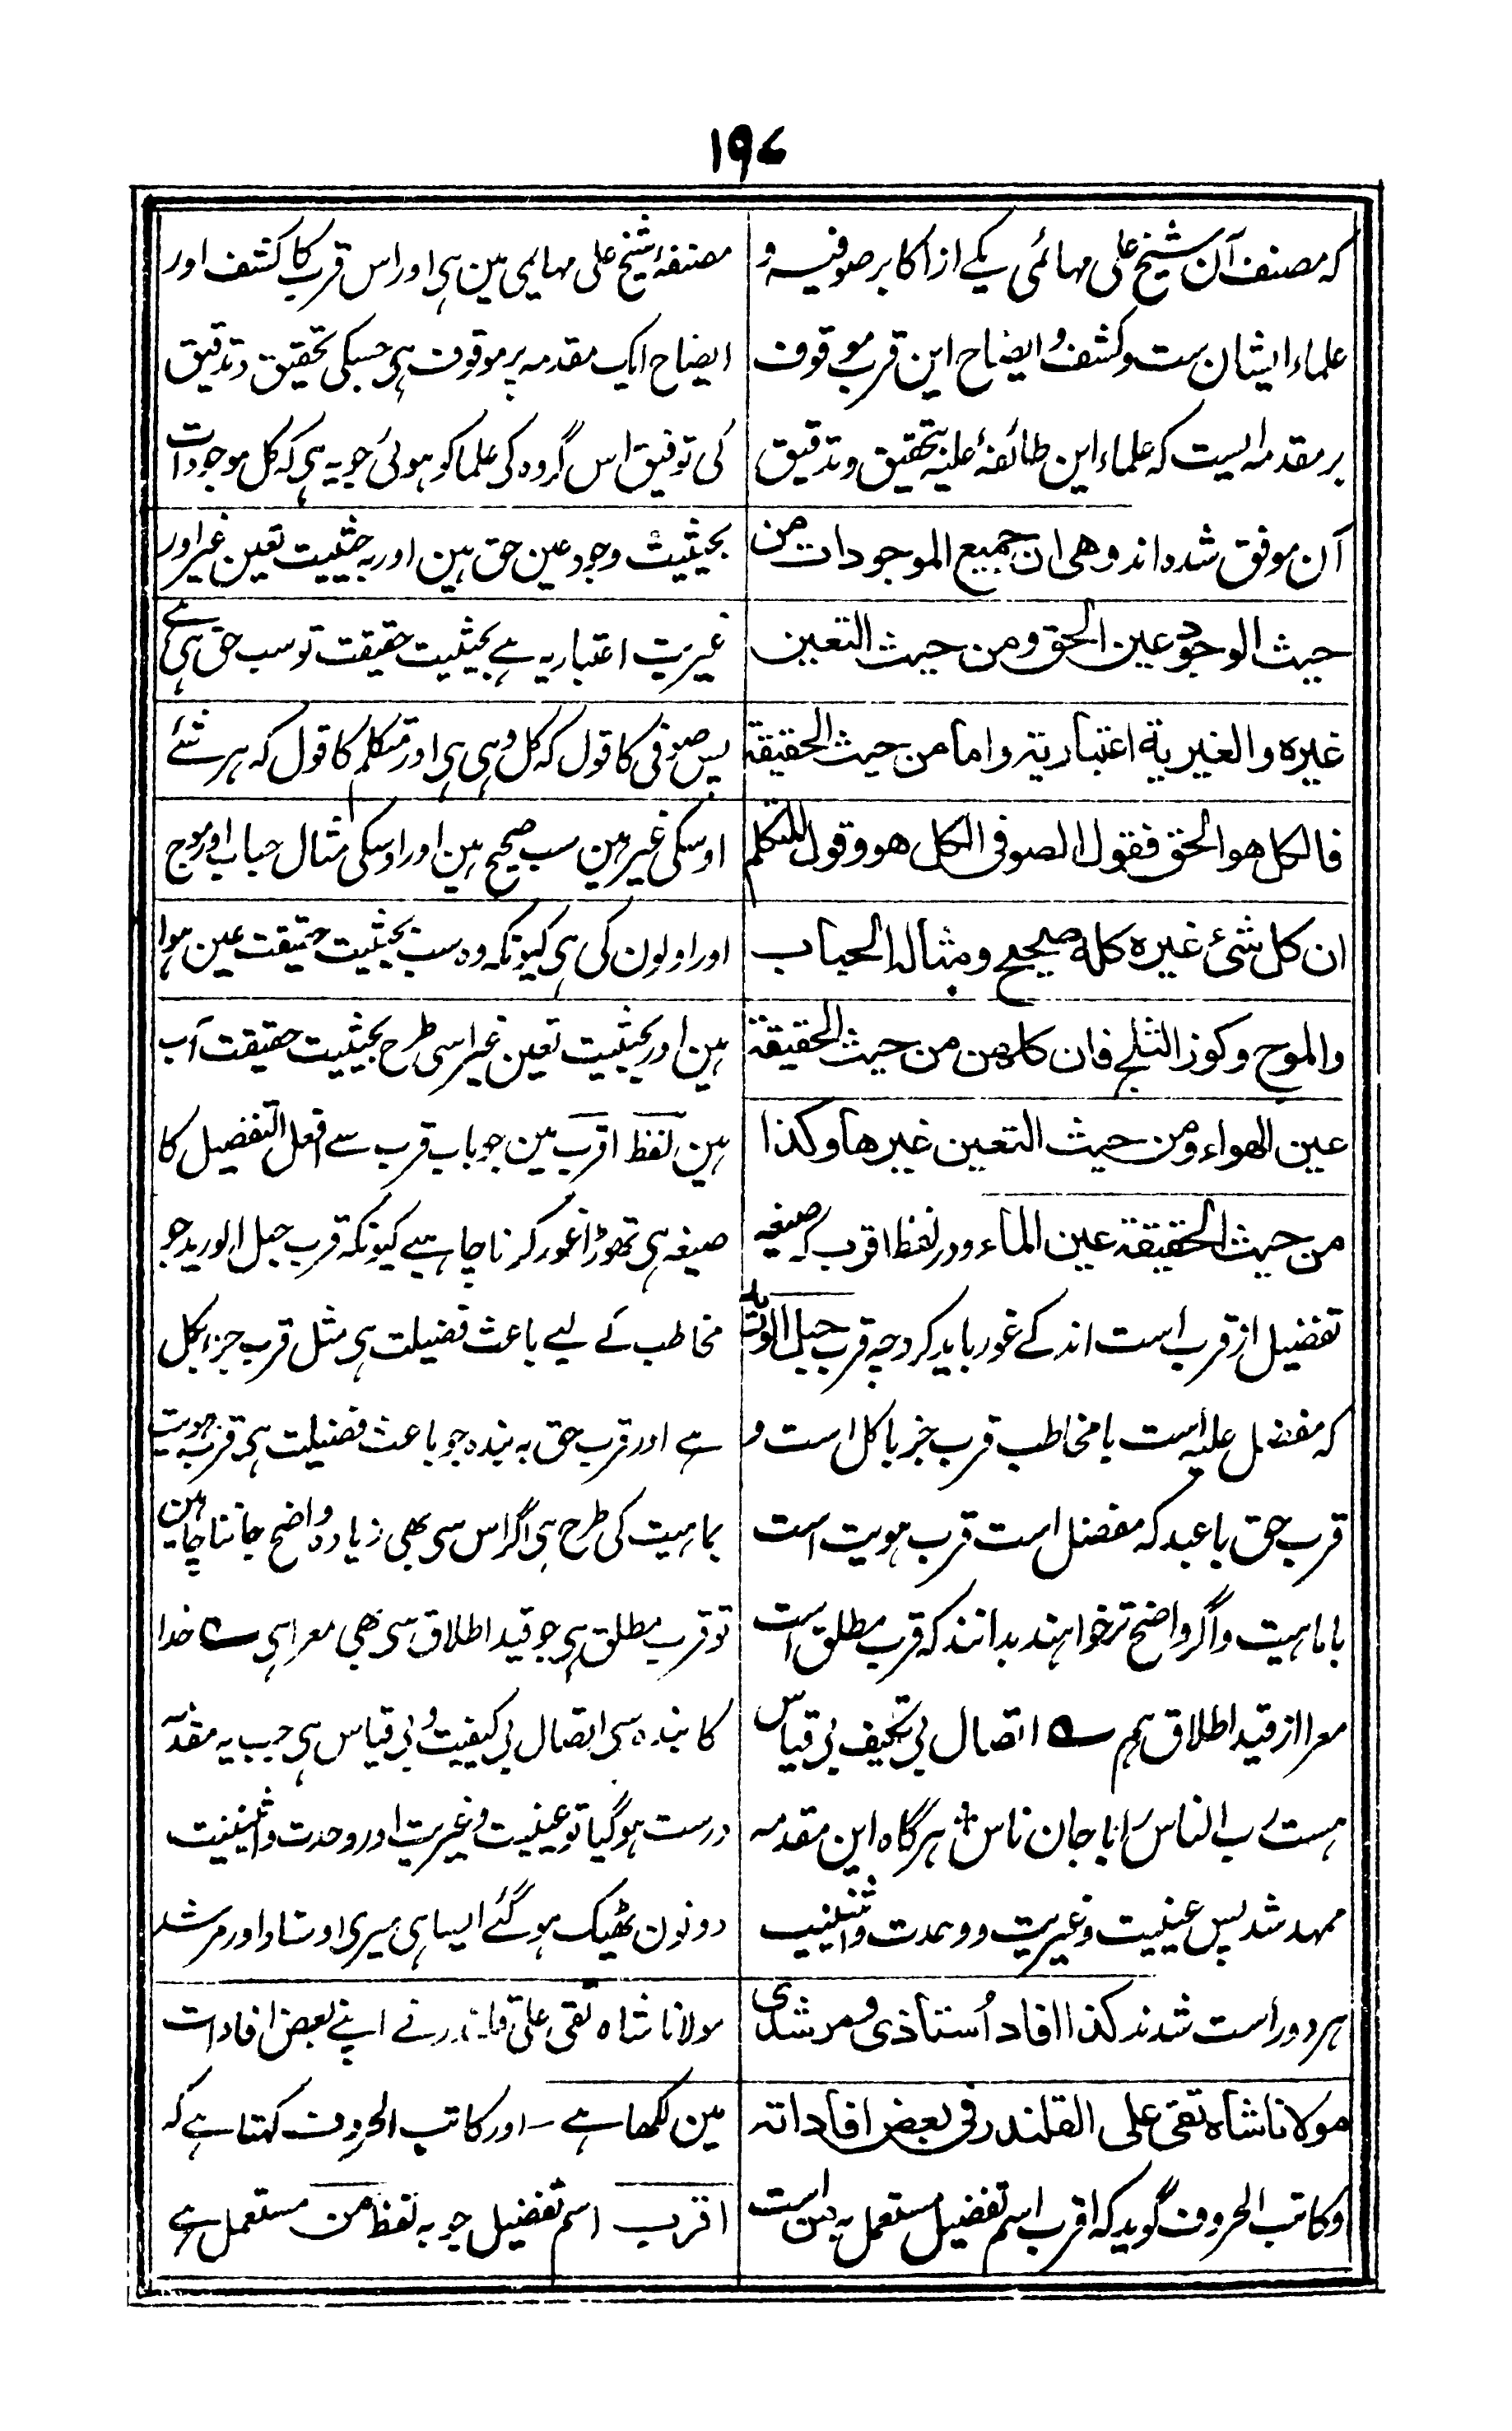 ۱۹۷
که مصنف آن شیخ علی مهائمی یکے از اکابر صوفیه و
علماء ایشان ست و کشف و ایضاح این قرب موقوف
بر مقدمه ایست که علماء این طائفۂ علیه بتحقیق و تدقیق
آن موفق شده اند وهی ان جمیع الموجودات من
حیث الوجود عین الحق ومن حیث التعین
غیره والغیریة اعتباریة واما من حیث الحقیقة
فالکل هو الحق فقول الصوفی الکل هو وقول المتکلم
ان کل شیٔ غیره کله صحیح ومثاله الحباب
والموج وکوز الثلج فان کلهن من حیث الحقیقة
عین الهواء ومن حیث التعین غیرها وکذا
من حیث الحقیقة عین الماء ودر لفظ اقرب که صیغه
تفضیل از قرب است اندکے غور باید کرد چه قرب حبل الورید
که مفضل علیه است با مخاطب قرب جز با کل است و
قرب حق با عبد که مفضل است قرب هویت است
با ماهیت و اگر واضح تر خواهند بدانند که قرب مطلق است
معرا از قید اطلاق هم ؎ اتصال بی تکیف بی قیاس
هست رب الناس را با جان ناس ؞ هرگاه این مقدمه
ممهد شد پس عینیت و غیریت و وحدت و اثنینیت
هر دو راست شدند کذا افاد اُستاذی و مرشدی
مولانا شاه تقی علی القلندر فی بعض افاداته
و کاتب الحروف گوید که اقرب اسم تفضیل مستعمل به من است
مصنفۂ شیخ علی مهایمی مین ہی اور اس قرب کا کشف اور
ایضاح ایک مقدمه پر موقوف ہی جسکی تحقیق و تدقیق
کی توفیق اس گروه کی علما کو ہوئی جو یه ہی که کل موجودات
بحیثیت وجود عین حق ہین اور بہ حیثیت تعین غیر اور
غیریت اعتباریه ہے بحیثیت حقیقت تو سب حق ہی ہے
پس صوفی کا قول که کل وہی ہی اور متکلم کا قول که ہر شئے
اوسکی غیر ہین سب صحیح ہین اور اوسکی مثال حباب اور موج
اور اولون کی ہی کیونکه وه سب بحیثیت حقیقت عین ہوا
ہین اور بحیثیت تعین غیر اسی طرح بحیثیت حقیقت آب
ہین لفظ اقرب مین جو باب قرب سے افعل التفضیل کا
صیغه ہی تھوڑا غور کرنا چاہیے کیونکه قرب حبل الورید جو
مخاطب کے لیے باعث فضیلت ہی مثل قرب جزء بکل
ہے اور قرب حق به بنده جو باعث فضیلت ہی قرب ہویت
بماہیت کی طرح ہی اگر اس سی بھی زیاده واضح جاننا چاہین
تو قرب مطلق ہی جو قید اطلاق سی بھی معرا ہی ؎ خدا
کا بنده سی اتصال بی کیفیت و بی قیاس ہی جب یه مقدمه
درست ہوگیا تو عینیت و غیریت اور وحدت و اثنینیت
دونون ٹھیک ہوگئے ایسا ہی میری اوستاد اور مرشد
مولانا شاه تقی علی قلندر نے اپنے بعض افادات
مین لکھا ہے – اور کاتب الحروف کہتا ہے که
اقرب اسم تفضیل جو به لفظ من مستعمل ہے